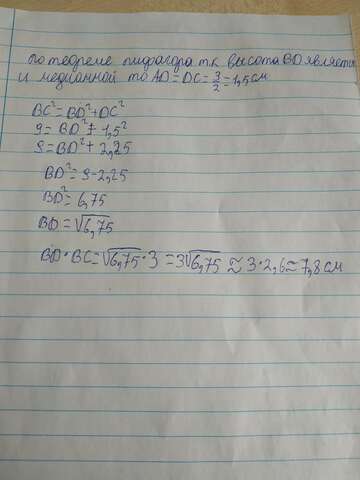 по теореме пифагора т к высота BD является
и медианной то AD = DC = 3/2 = 1,5 см
BC² = BD² + DC²
9 = BD² + 1,5²
9 = BD² + 2,25
BD² = 9 - 2,25
BD² = 6,75
BD = √6,75
BD · BC = √6,75 · 3 = 3√6,75 ≈ 3 · 2,6 ≈ 7,8 см